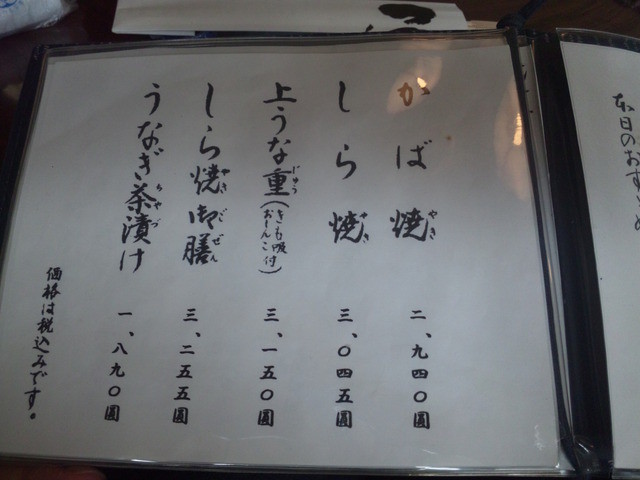 本日のおすすめ
かば焼 二、九四〇圓
やき
しら焼 三、〇四五圓
やき
上うな重(きも吸 おしんこ付) 三、一五〇圓
じゅう
しら焼御膳 三、二五五圓
やきごぜん
うなぎ茶漬け 一、八九〇圓
ちゃづ
価格は税込みです。